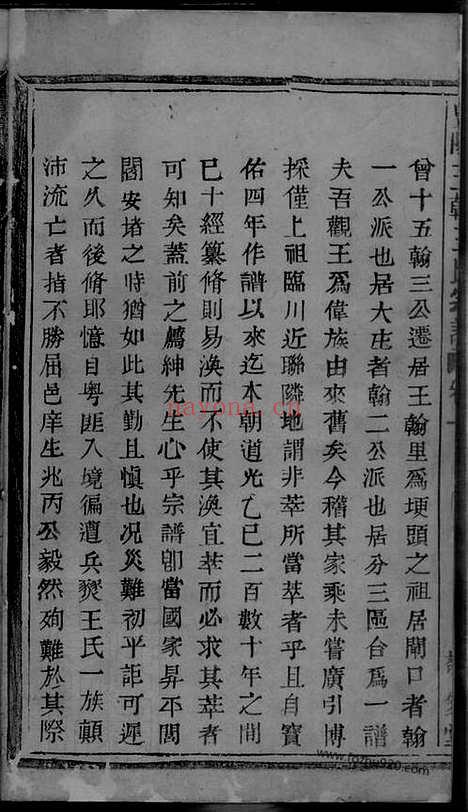 曾十五翰三公遷居王翰里爲埂頭之祖居閘口者翰
一公派也居大庄者翰二公派也居分三區合爲一譜
夫吾觀王爲偉族由來舊矣今稽其家乘未嘗廣引博
採僅上祖臨川近聯隣地謂非萃所當萃者乎且自寳
佑四年作譜以來迄本朝道光乙巳二百數十年之間
已十經纂脩則易渙而不使其渙宜萃而必求其萃者
可知矣蓋前之薦紳先生心乎宗譜卽當國家昇平閭
閻安堵之時猶如此其勤且愼也况災難初平詎可遲
之久而後脩耶憶自粤匪入境徧遭兵燹王氏一族顛
沛流亡者指不勝屈邑庠生兆丙公毅然殉難於其際
nayona.cn
www.fozhu920.com